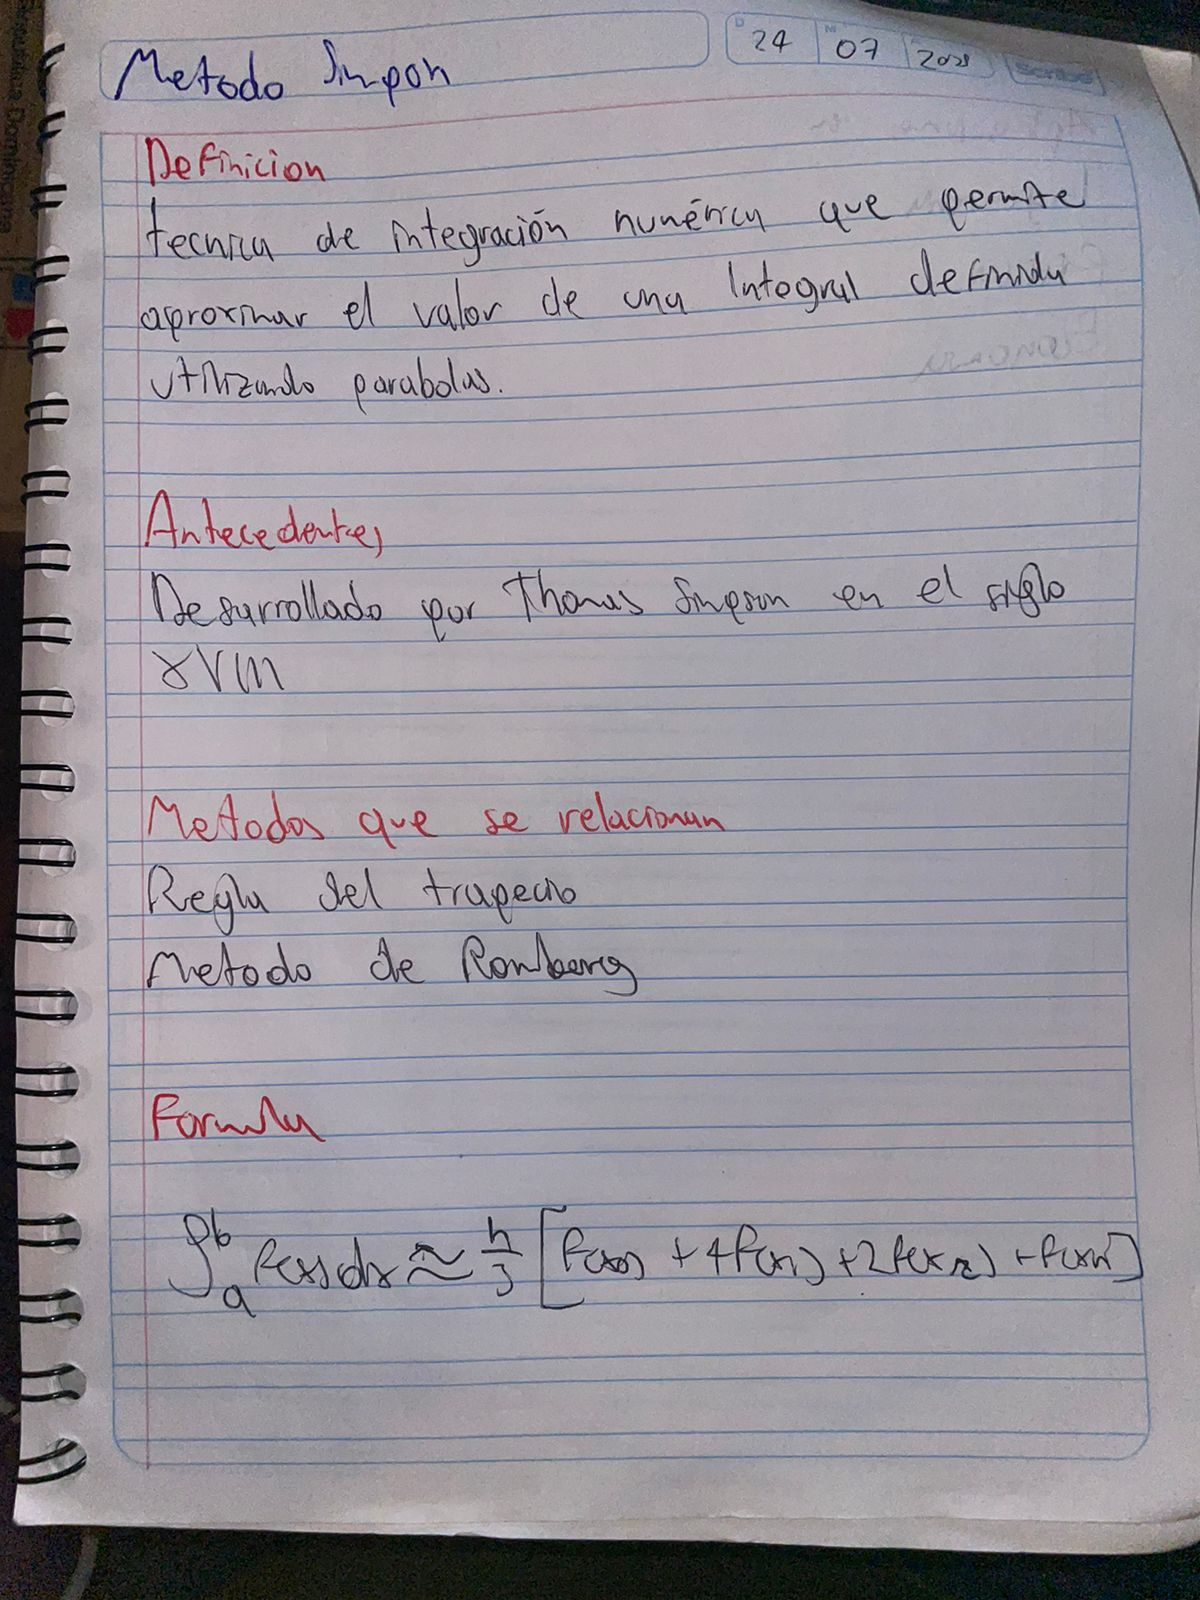 Metodo Simpon
24 07 2025
Definicion
tecnica de integración numérica que permite
aproximar el valor de una Integral definida
utilizando parabolas.
Antecedentes
Desarrollado por Thomas Simpson en el siglo
XVIII
Metodos que se relacionan
Regla del trapecio
Metodo de Romberg
Formula
∫ₐᵇ f(x)dx ≈ h/3 [f(x₀) + 4f(x₁) + 2f(x₂) + f(xₙ)]